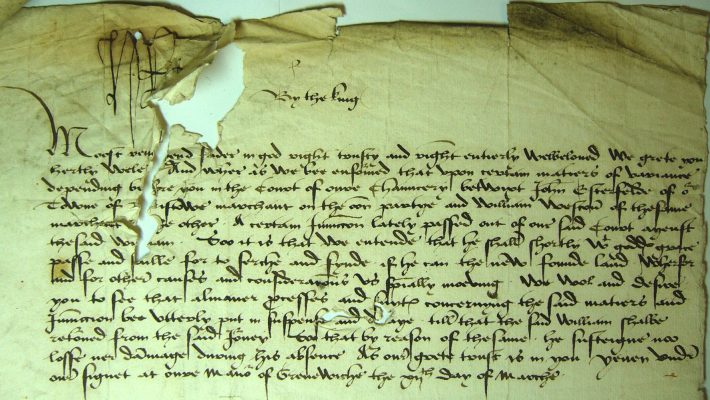 By the king
Moost rev end fader in god right trusty and right entierly Welbeloved We grete you
hertly Wele And Wher as We be enformed that upon certain matiers of variance
depending be re you in the Court of oure Chauncery betwixt John Esterfelde of
Towne of istowe marchant on the oon partye and William Weston of the same
marchant other A certain lately passed out of our said Court ayenst
the said Wi iam Soo it is that We entende that he shall shortly Wt goddes grace
passe and saille for to serche and fynde if he can the new founde land Wherfor
and for other causes and consideracions us specially moeving We Wol and desire
you to see that almaner processes and concernyng the said matiers and
Iniunccion bee utterly put in suspense and aye till that the said William shalbe
retorned from the said Iorney Soo that by reason of the same he susteigne noo
losse ner dammage during his absence As our grete trust is in you Yeven undre
our signet at oure Manor of Grenewiche the day of Marche